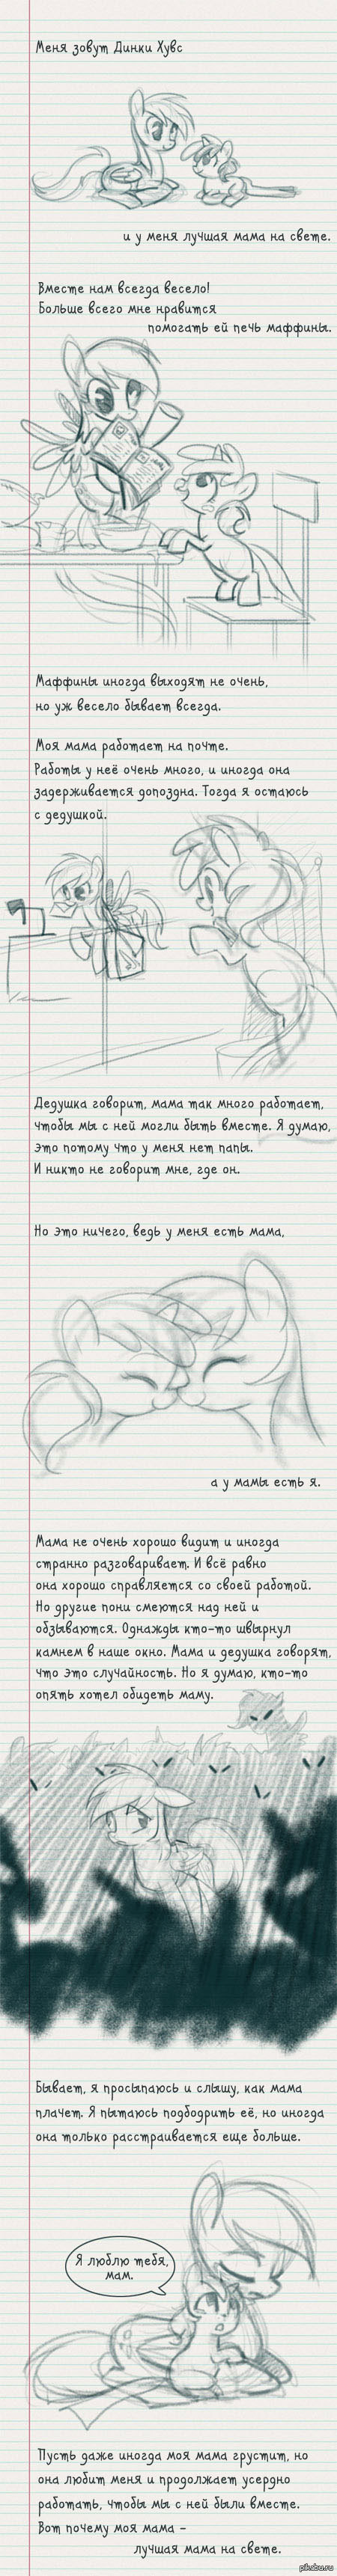 Меня зовут Динки Хувс
и у меня лучшая мама на свете.
Вместе нам всегда весело!
Больше всего мне нравится
помогать ей печь маффины.
Маффины иногда выходят не очень,
но уж весело бывает всегда.
Моя мама работает на почте.
Работы у неё очень много, и иногда она
задерживается допоздна. Тогда я остаюсь
с дедушкой.
Дедушка говорит, мама так много работает,
чтобы мы с ней могли быть вместе. Я думаю,
это потому что у меня нет папы.
И никто не говорит мне, где он.
Но это ничего, ведь у меня есть мама,
а у мамы есть я.
Мама не очень хорошо видит и иногда
странно разговаривает. И всё равно
она хорошо справляется со своей работой.
Но другие пони смеются над ней и
обзываются. Однажды кто-то швырнул
камнем в наше окно. Мама и дедушка говорят,
что это случайность. Но я думаю, кто-то
опять хотел обидеть маму.
Бывает, я просыпаюсь и слышу, как мама
плачет. Я пытаюсь подбодрить её, но иногда
она только расстраивается еще больше.
Я люблю тебя,
мам.
Пусть даже иногда моя мама грустит, но
она любит меня и продолжает усердно
работать, чтобы мы с ней были вместе.
Вот почему моя мама –
лучшая мама на свете.
pikabu.ru